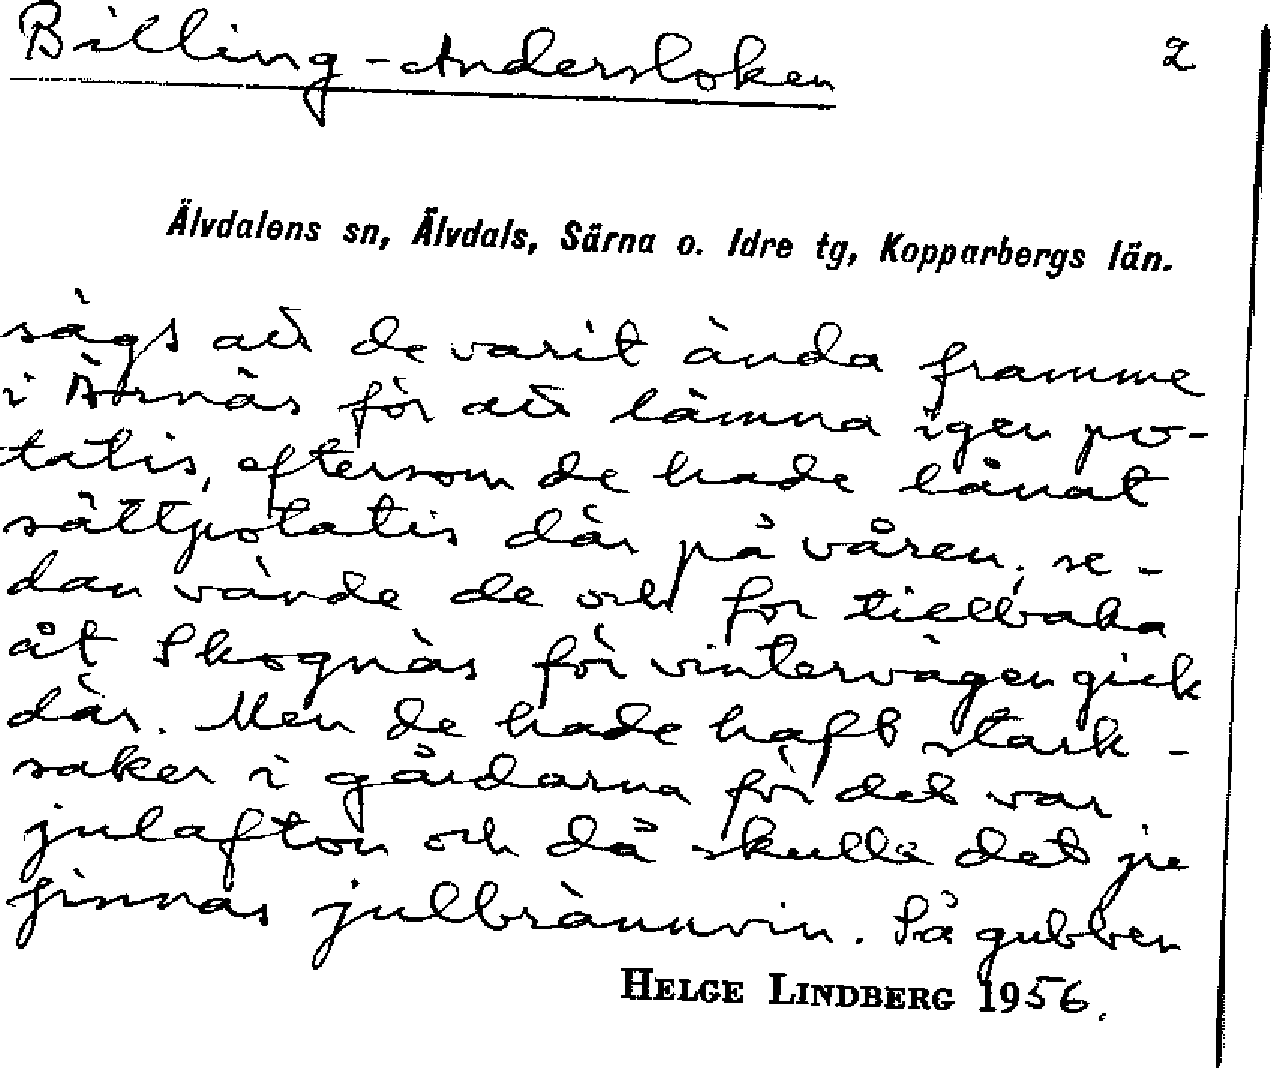 Billing-Andersloken 2
Älvdalens sn, Älvdals, Särna o. Idre tg, Kopparbergs län.
sägs att de varit ända framme
i Årnäs för att lämna igen po-
tatis, eftersom de hade lånat
sättpotatis där på våren; se-
dan vände de och for tillbaka
åt Skognäs för vintervägen gick
där. Men de hade haft stark-
saker i gårdarna för det var
julafton och då skulle det ju
finnas julbrännvin. Så gubben
HELGE LINDBERG 1956.